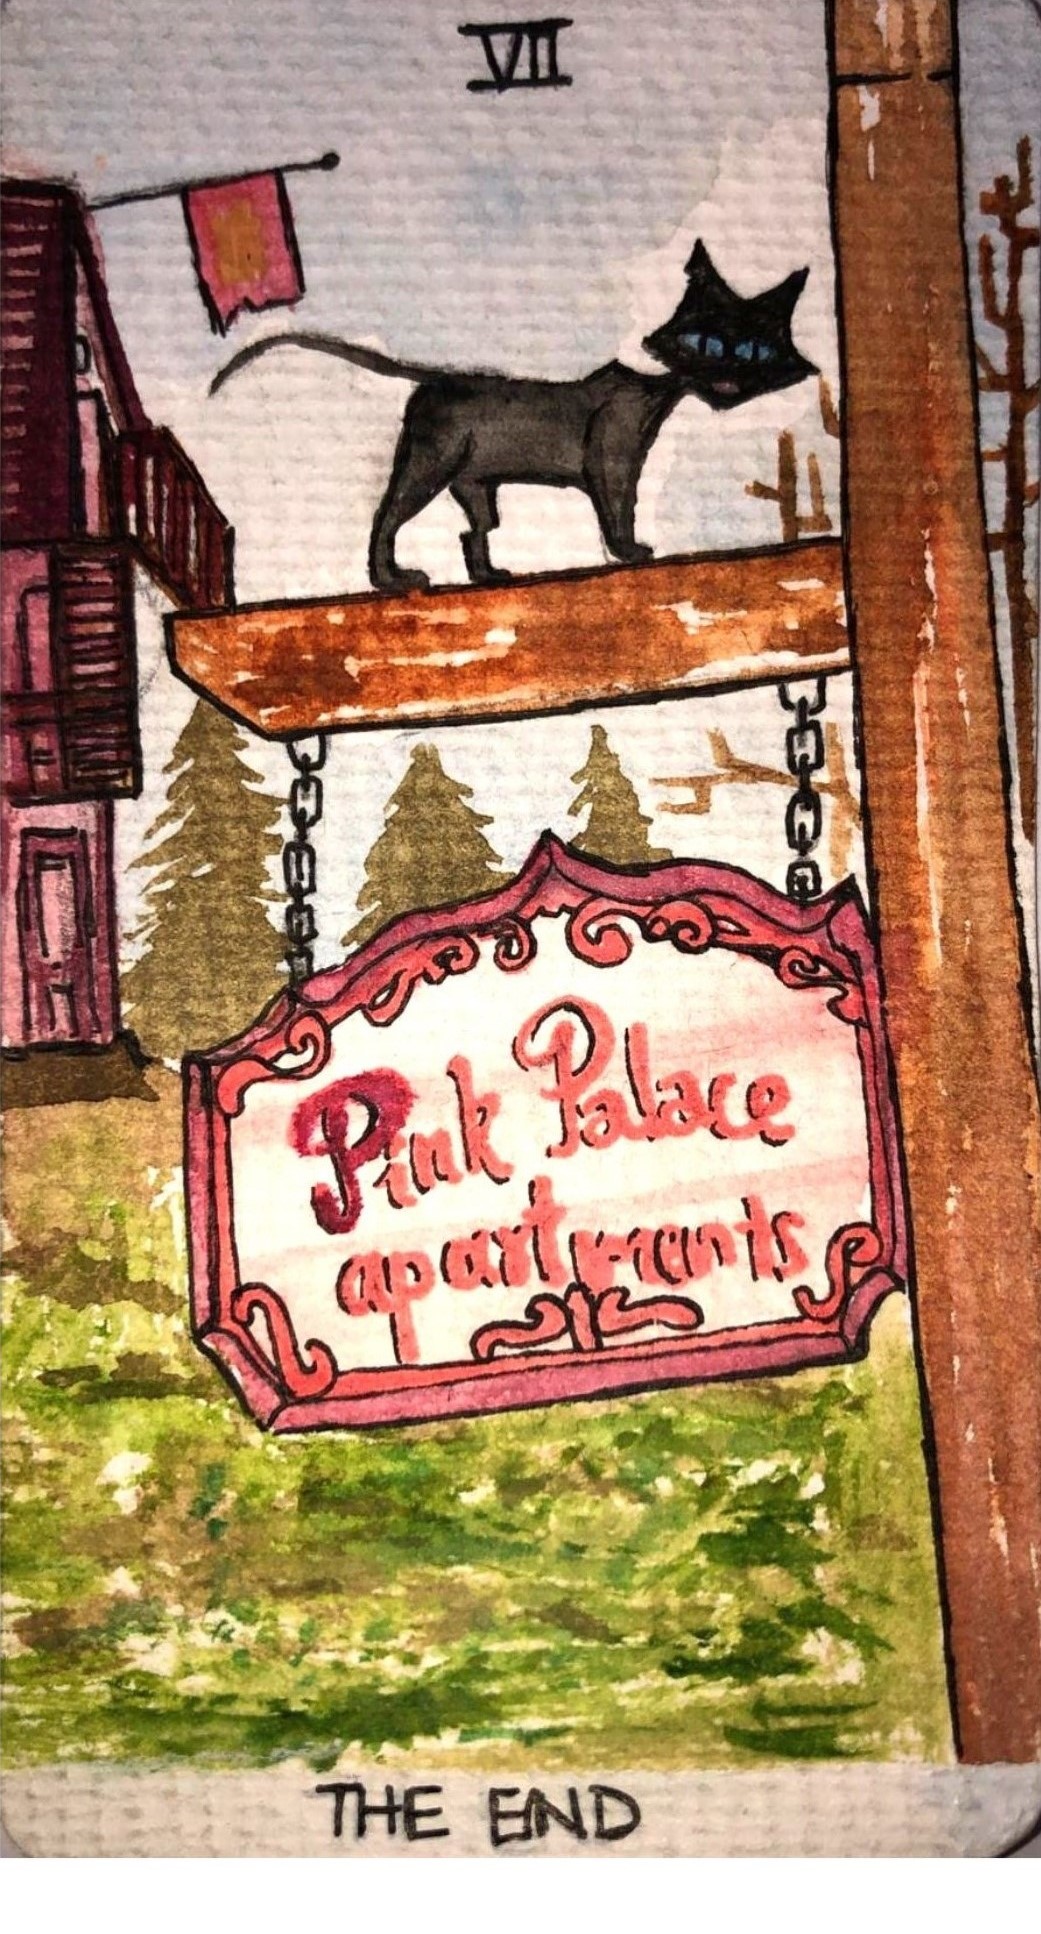 VII
Pink Palace
apartments
THE END